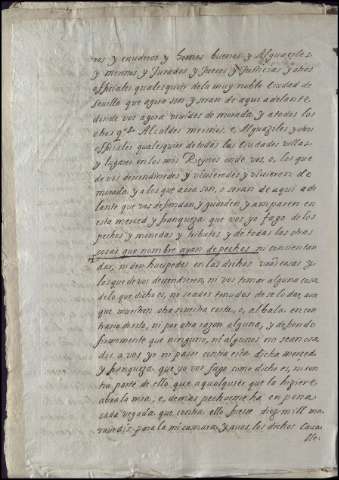 ros y escuderos y homes buenos y Alguaziles
y merinos y Jurados y Jueces y Justicias y otros
oficiales qualesquier de la muy noble Ciudad de
Sevilla que agora son y seran de aqui adelante,
donde vos agora vivides de morada, y a todos los
otros Alcaldes merinos, e Alguaziles y otros
oficiales qualesquier de todas las Ciudades villas
y lugares en los mis Reynos onde vos, e, los que
de vos descendieredes y vinieredes y vivieren de
morada, y a los que aora son, o seran de aqui ade
lante que vos defiendan, y guarden y amparen en
esta merced y franqueza que vos yo fago de los
pechos y monedas y tributos y de todas las otras
cosas que nombre ayan de pechos
dar, ni den huespedes en las dichas casas y
los que de vos descendieren, ni vos tomar alguna cosa
de lo que dicho es, no seades tenudos de se lo dar, aun
que muestren otra nuestra carta, o, albala en con
trario desto, ni por otra razon alguna, y defiendo
firmemente que ninguno, ni algunos no sean osa
dos a vos yr ni pasar contra esta dicha merced
y franqueza que yo vos fago como dicho es, ni con
tra parte de ello que a qualquier que lo hiziere,
abra la mia, e, demas pecharme ha en pena
cada vegada que contra ello fuese diez mill ma
ravedis, para la mi camara, y a vos los dichos